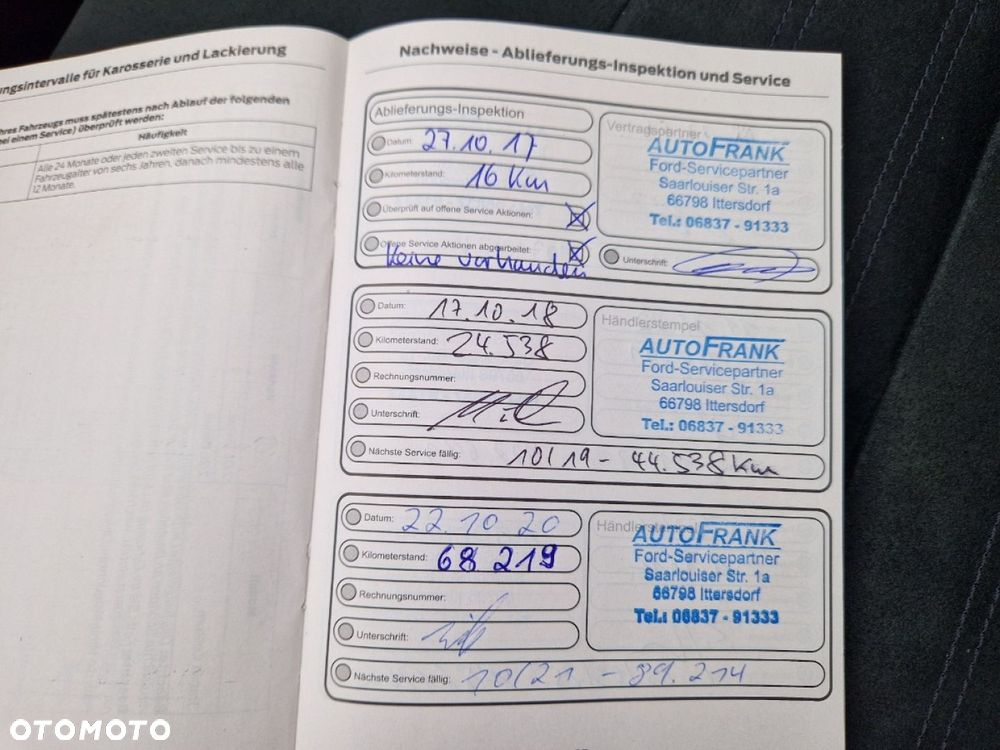 ungsintervalle für Karosserie und Lackierung
hres Fahrzeugs muss spätestens nach Ablauf der folgenden
bei einem Service) überprüft werden:
Häufigkeit
Alle 24 Monate oder jeden zweiten Service bis zu einem
Fahrzeugalter von sechs Jahren, danach mindestens alle
12 Monate.
Nachweise - Ablieferungs-Inspektion und Service
Ablieferungs-Inspektion
Datum: 27.10.17
Kilometerstand: 16 Km
Überprüft auf offene Service Aktionen:
Offene Service Aktionen abgearbeitet:
Keine vorhanden
Vertragspartner
AUTOFRANK
Ford-Servicepartner
Saarlouiser Str. 1a
66798 Ittersdorf
Tel.: 06837 - 91333
Unterschrift:
Datum: 17.10.18
Kilometerstand: 24.538
Rechnungsnummer:
Unterschrift:
Nächste Service fällig: 10/19 - 44.538 Km
Händlerstempel
AUTOFRANK
Ford-Servicepartner
Saarlouiser Str. 1a
66798 Ittersdorf
Tel.: 06837 - 91333
Datum: 22.10 20
Kilometerstand: 68 219
Rechnungsnummer:
Unterschrift:
Nächste Service fällig: 10/21 - 89.214
Händlerstempel
AUTOFRANK
Ford-Servicepartner
Saarlouiser Str. 1a
66798 Ittersdorf
Tel.: 06837 - 91333
OTOMOTO